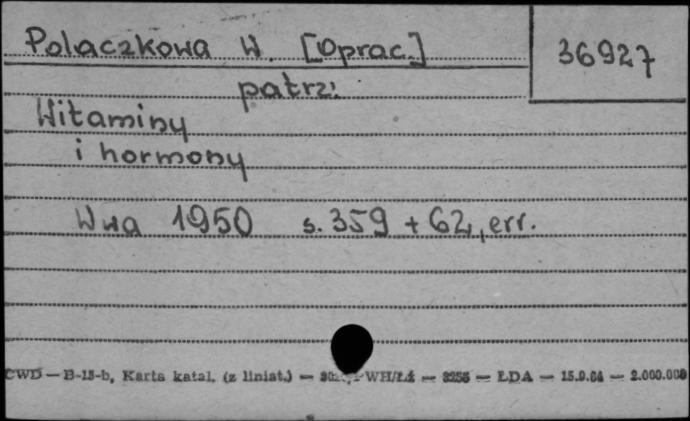 Polaczkowa W. [Oprac.]
36927
patrz:
Witaminy
i hormony
Wwa 1950 s. 359 + 62, err.
CWD — B-15-b, Karta katal. (z liniat.) — WH/Łź — 3255 — ŁDA — 15.9.64 — 2.000.000